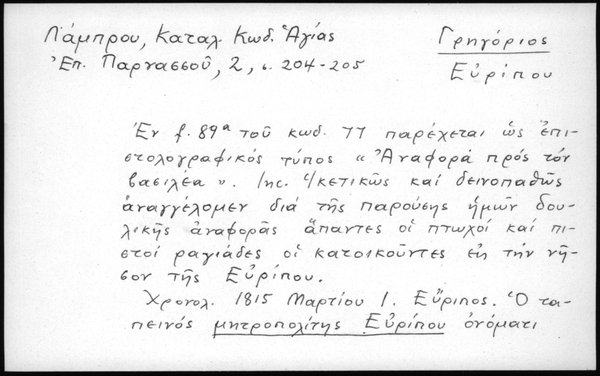 Λάμπρου, Καταλ. Κωδ. Ἁγίας
Ἐπ. Παρνασσοῦ, 2, σ. 204-205
Γρηγόριος
Εὐρίπου
Ἐν f. 89ª τοῦ κωδ. 77 παρέχεται ὡς ἐπι-
στολογραφικός τύπος « Ἀναφορά πρός τόν
βασιλέα ». Inc. Ἱκετικῶς καί δεινοπαθῶς
ἀναγγέλομεν διά τῆς παρούσης ἡμῶν δου-
λικῆς ἀναφορᾶς ἅπαντες οἱ πτωχοί καί πι-
στοί ραγιάδες οἱ κατοικοῦντες εἰς τήν νῆ-
σον τῆς Εὐρίπου.
Χρονολ. 1815 Μαρτίου 1. Εὔριπος. Ὁ τα-
πεινός μητροπολίτης Εὐρίπου ὀνόματι